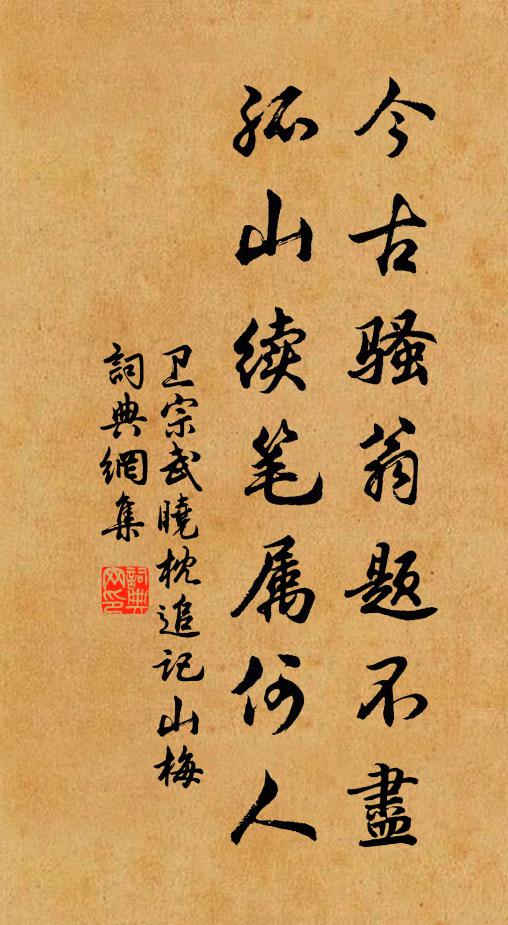 今古骚翁题不盡
孤山续笔属何人
卫宗武曉枕追记山梅
詞典網集
詞典
网印